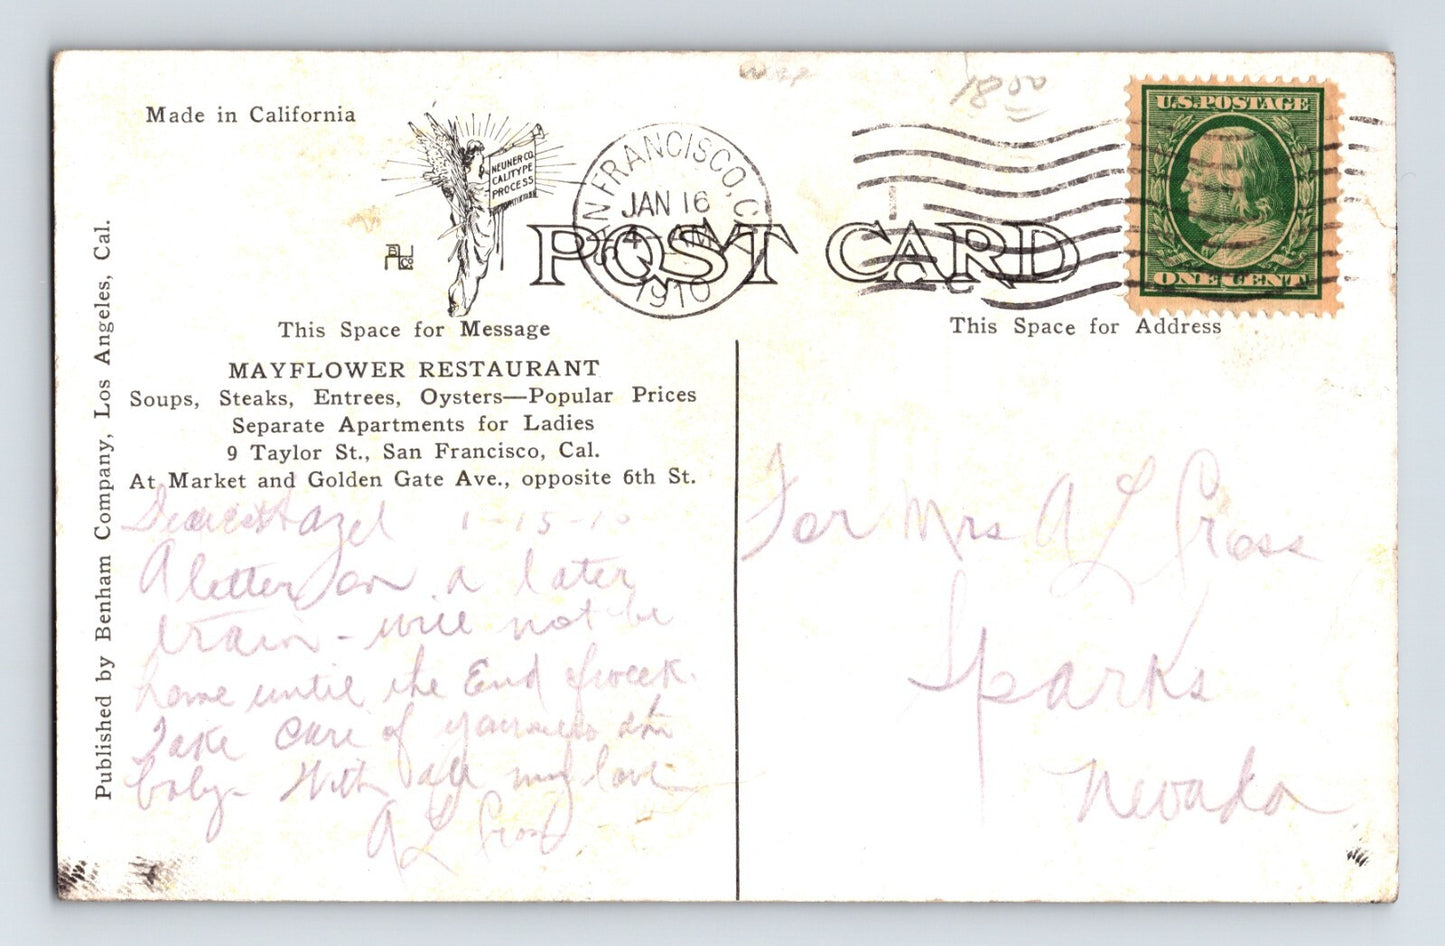 Made in California
NEUNER CO.
CALITYPE
PROCESS
BHCo
POST CARD
SAN FRANCISCO, CAL.
JAN 16
4 AM
1910
U.S. POSTAGE
ONE CENT
This Space for Message
This Space for Address
MAYFLOWER RESTAURANT
Soups, Steaks, Entrees, Oysters—Popular Prices
Separate Apartments for Ladies
9 Taylor St., San Francisco, Cal.
At Market and Golden Gate Ave., opposite 6th St.
Published by Benham Company, Los Angeles, Cal.
Dearest Hazel 1-15-10
A letter on a later
train - will not be
home until the End of week.
Take Care of yourself and
baby - With all my love
A L Gross
For Mrs A L Gross
Sparks
Nevada